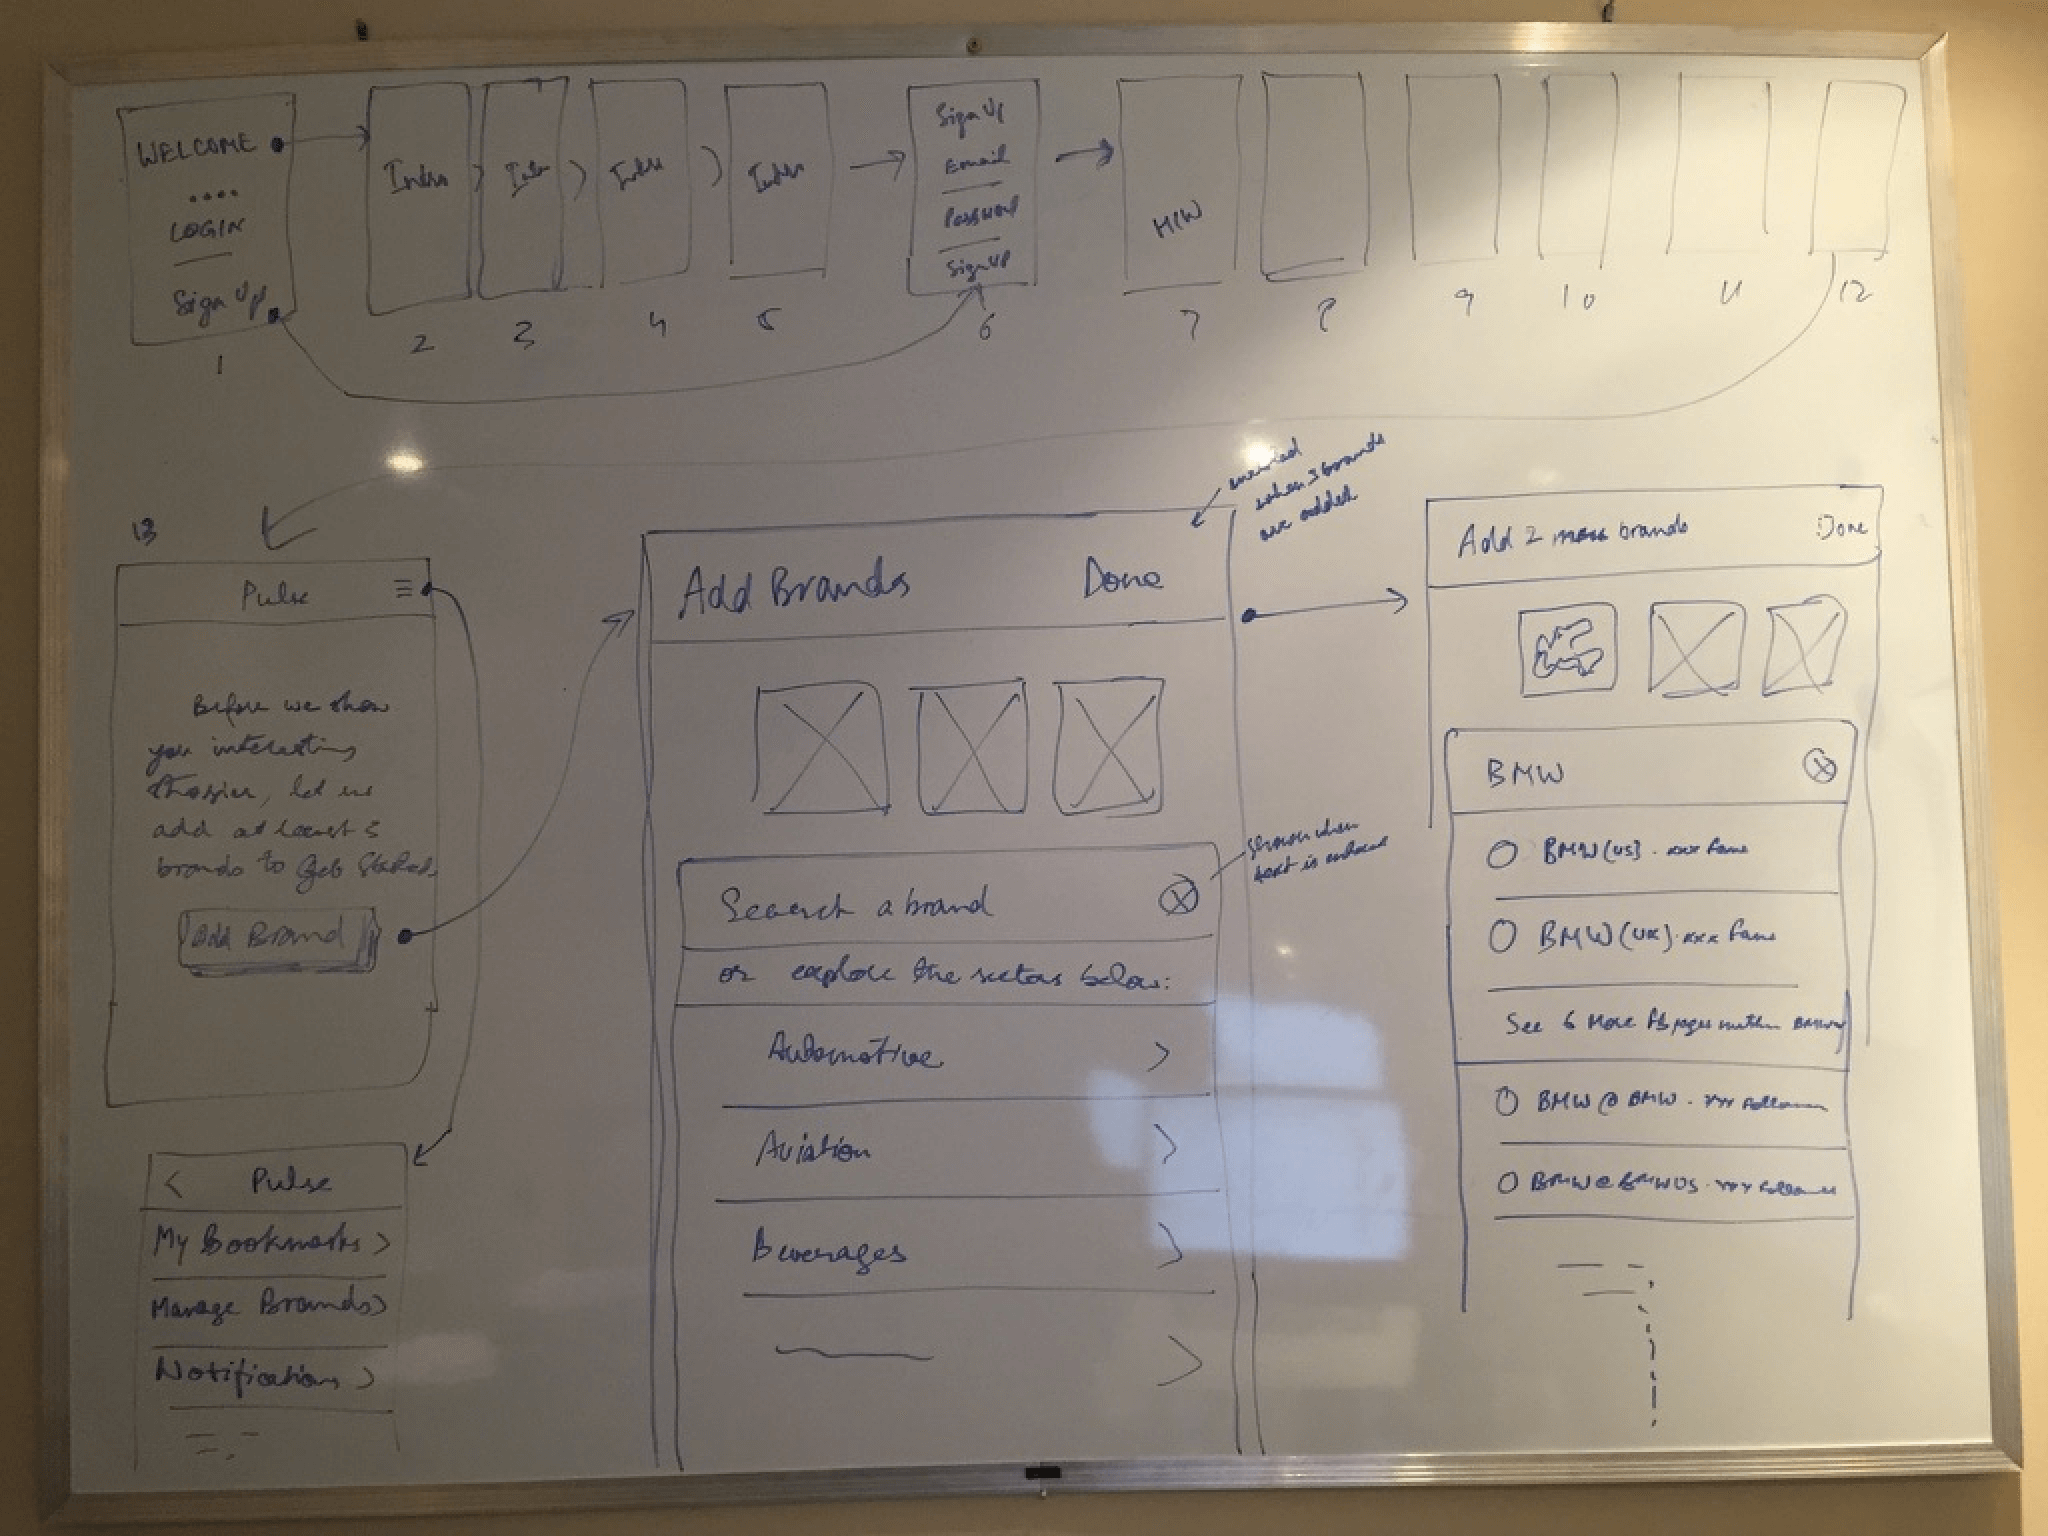 WELCOME
....
LOGIN
Sign Up
1
Intro
2
Intro
3
Intro
4
Intro
5
Sign Up
Email
Password
Sign Up
6
7
8
9
10
11
12
13
Pulse
Before we show
you interesting
let us
add at least 3
brands to Get Started
Add Brand
< Pulse
My Bookmarks >
Manage Brands >
Notifications >
when 3 brands
are added
Add Brands Done
shown when
text is entered
Search a brand
or explore the sectors below:
Automotive >
Aviation >
Beverages >
Add 2 more brands Done
BMW
BMW (US) . xxx Fans
BMW (UK) . xxx Fans
See 6 More FB pages BMW
BMW @ BMW . xxx Followers
BMW @ BMWUS . xxx Followers